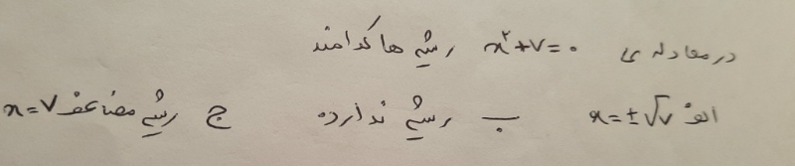 در معادله ی x²+۷=۰ ریشه ها کدامند
الف x=±√۷ ب ریشه ندارد ج ریشه مضاعف x=۷